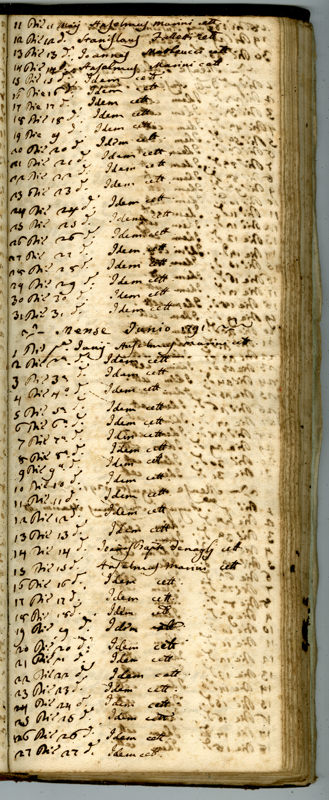 11 Die 11 Maij Anselmus Marini cett
12 Die 12 d. Stanislaus cett
13 Die 13 d. Joannes Matteucci cett
14 Die 14 d. Anselmus Marini cett
15 Die 15 d. Idem cett
16 Die 16 d. Idem cett
17 Die 17 d. Idem cett
18 Die 18 d. Idem cett
19 Die 19 d. Idem cett
20 Die 20 d. Idem cett
21 Die 21 d. Idem cett
22 Die 22 d. Idem cett
23 Die 23 d. Idem cett
24 Die 24 d. Idem cett
25 Die 25 d. Idem cett
26 Die 26 d. Idem cett
27 Die 27 d. Idem cett
28 Die 28 d. Idem cett
29 Die 29 d. Idem cett
30 Die 30 d. Idem cett
31 Die 31 d. Idem cett
Mense Junio 1791
1 Die Junij Anselmus Marini cett
2 Die 2 d. Idem cett
3 Die 3 d. Idem cett
4 Die 4 d. Idem cett
5 Die 5 d. Idem cett
6 Die 6 d. Idem cett
7 Die 7 d. Idem cett
8 Die 8 d. Idem cett
9 Die 9 d. Idem cett
10 Die 10 d. Idem cett
11 Die 11 d. Idem cett
12 Die 12 d. Idem cett
13 Die 13 d. Idem cett
14 Die 14 d. cett
15 Die 15 d. Anselmus Marini cett
16 Die 16 d. Idem cett
17 Die 17 d. Idem cett
18 Die 18 d. Idem cett
19 Die 19 d. Idem cett
20 Die 20 d. Idem cett
21 Die 21 d. Idem cett
22 Die 22 d. Idem cett
23 Die 23 d. Idem cett
24 Die 24 d. Idem cett
25 Die 25 d. Idem cett
26 Die 26 d. Idem cett
27 Die 27 d. Idem cett